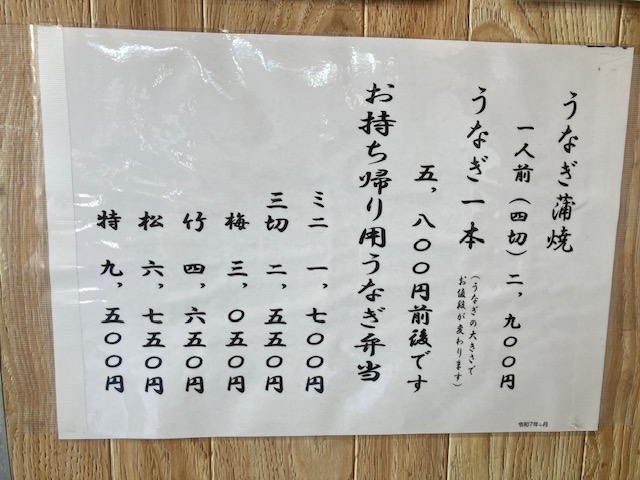 うなぎ蒲焼
一人前(四切)二,九〇〇円
うなぎ一本
(うなぎの大きさで
お値段が変わります)
五,八〇〇円前後です
お持ち帰り用うなぎ弁当
ミニ 一,七〇〇円
三切 二,五五〇円
梅 三,〇五〇円
竹 四,六五〇円
松 六,七五〇円
特 九,五〇〇円